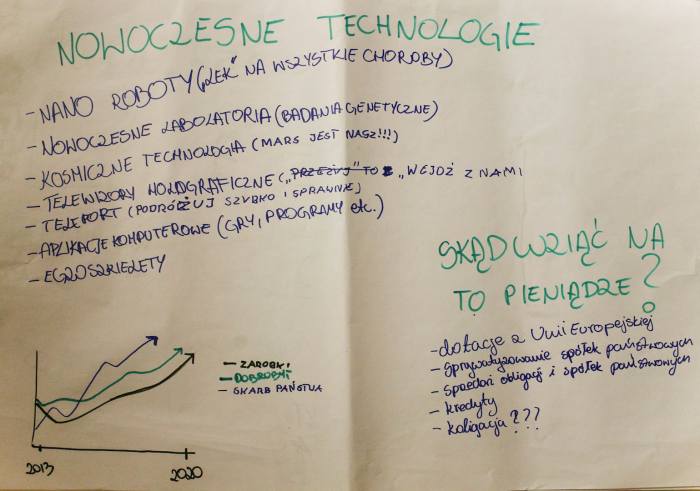 NOWOCZESNE TECHNOLOGIE
- NANO ROBOTY („LEK" NA WSZYSTKIE CHOROBY)
- NOWOCZESNE LABOLATORIA (BADANIA GENETYCZNE)
- KOSMICZNE TECHNOLOGIA (MARS JEST NASZ!!!)
- TELEWIZORY HOLOGRAFICZNE („PRZEŻYJ" TO „WEJDŹ Z NAMI
- TELEPORT (PODRÓŻUJ SZYBKO I SPRAWNIE)
- APLIKACJE KOMPUTEROWE (GRY, PROGRAMY etc.)
- EGZOSZKIELETY
SKĄD WZIĄĆ NA
TO PIENIĄDZE?
- dotacje z Unii Europejskiej
- sprywatyzowanie spółek państwowych
- sprzedaż obligacji i spółek państwowych
- kredyty
- koligacja???
— ZAROBKI
— DOBROBYT
— SKARB PAŃSTWA
2013 2020